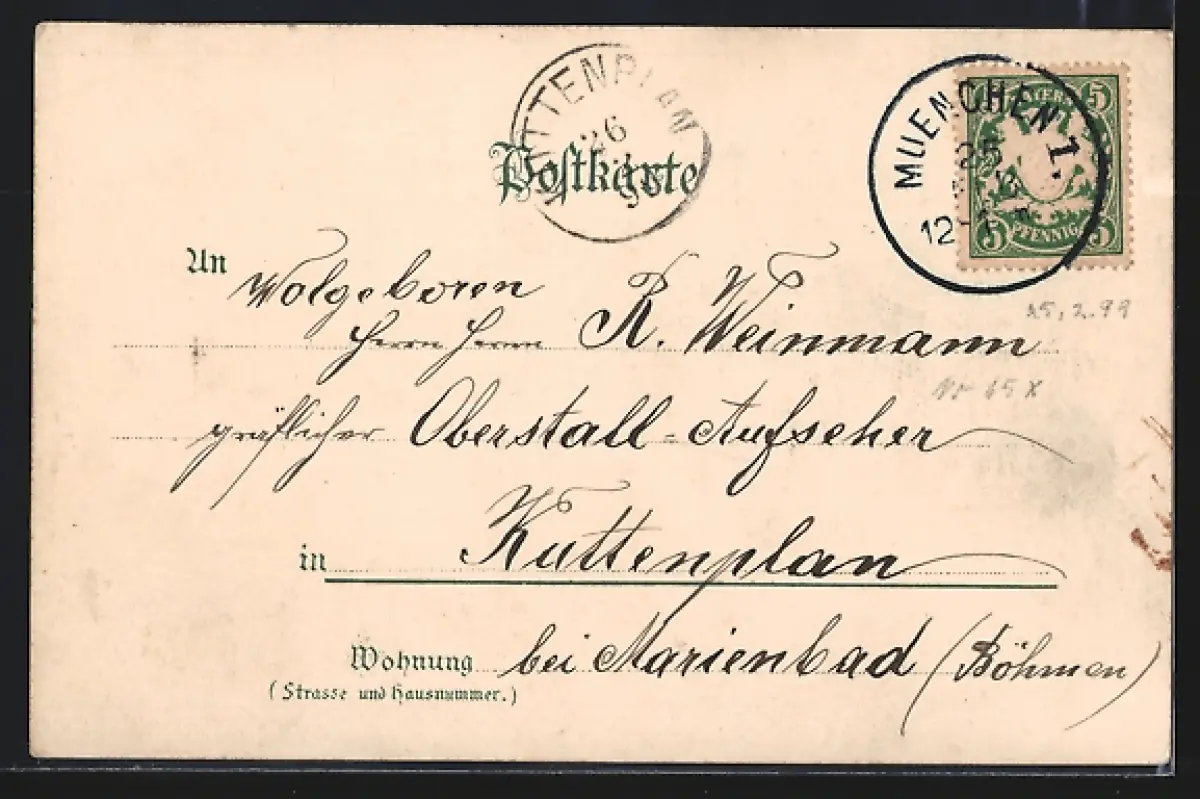 KUTTENPLAN
26
Postkarte
BAYERN
5
5 PFENNIG 5
MUENCHEN 1.
25
12-1
25.2.99
An Wolgeboren
Herrn Herrn R. Weinmann
gräflicher Oberstall-Aufseher
in Kuttenplan
Wohnung bei Marienbad (Böhmen)
(Strasse und Hausnummer.)